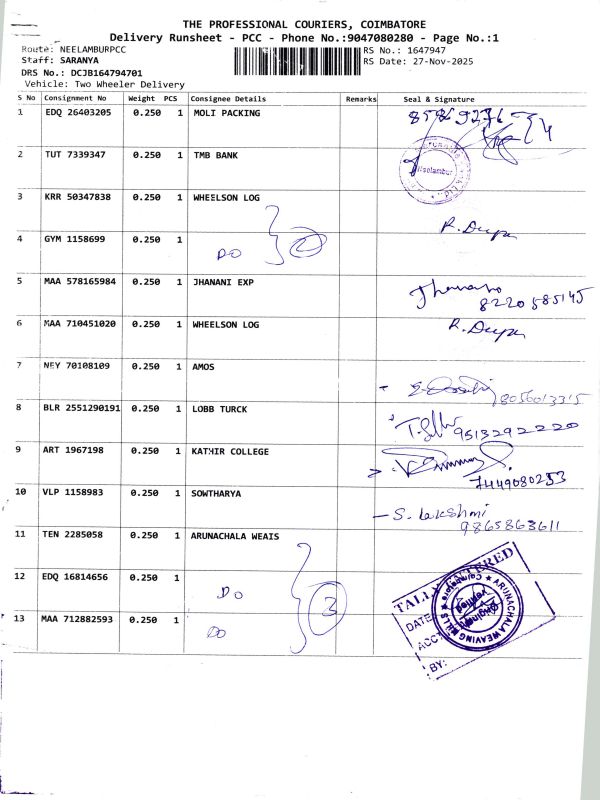 THE PROFESSIONAL COURIERS, COIMBATORE
Delivery Runsheet - PCC - Phone No.:9047080280 - Page No.:1
Route: NEELAMBURPCC RS No.: 1647947
Staff: SARANYA RS Date: 27-Nov-2025
DRS No.: DCJB164794701
Vehicle: Two Wheeler Delivery
S No Consignment No Weight PCS Consignee Details Remarks Seal & Signature
1 EDQ 26403205 0.250 1 MOLI PACKING
2 TUT 7339347 0.250 1 TMB BANK
Neelambur
3 KRR 50347838 0.250 1 WHEELSON LOG
R. Deepa
4 GYM 1158699 0.250 1
DO 2
5 MAA 578165984 0.250 1 JHANANI EXP
8220585145
6 MAA 710451020 0.250 1 WHEELSON LOG R. Deepa
7 NEY 70108109 0.250 1 AMOS
8056013315
8 BLR 2551290191 0.250 1 LOBB TURCK
9513292220
9 ART 1967198 0.250 1 KATHIR COLLEGE
7449080253
10 VLP 1158983 0.250 1 SOWTHARYA
S. Lekshmi
9865863611
11 TEN 2285058 0.250 1 ARUNACHALA WEAIS
12 EDQ 16814656 0.250 1
Do 3
13 MAA 712882593 0.250 1
Do
DATE
ACC
BY:
ARUNACHALA WEAVING MILLS
Coimbatore